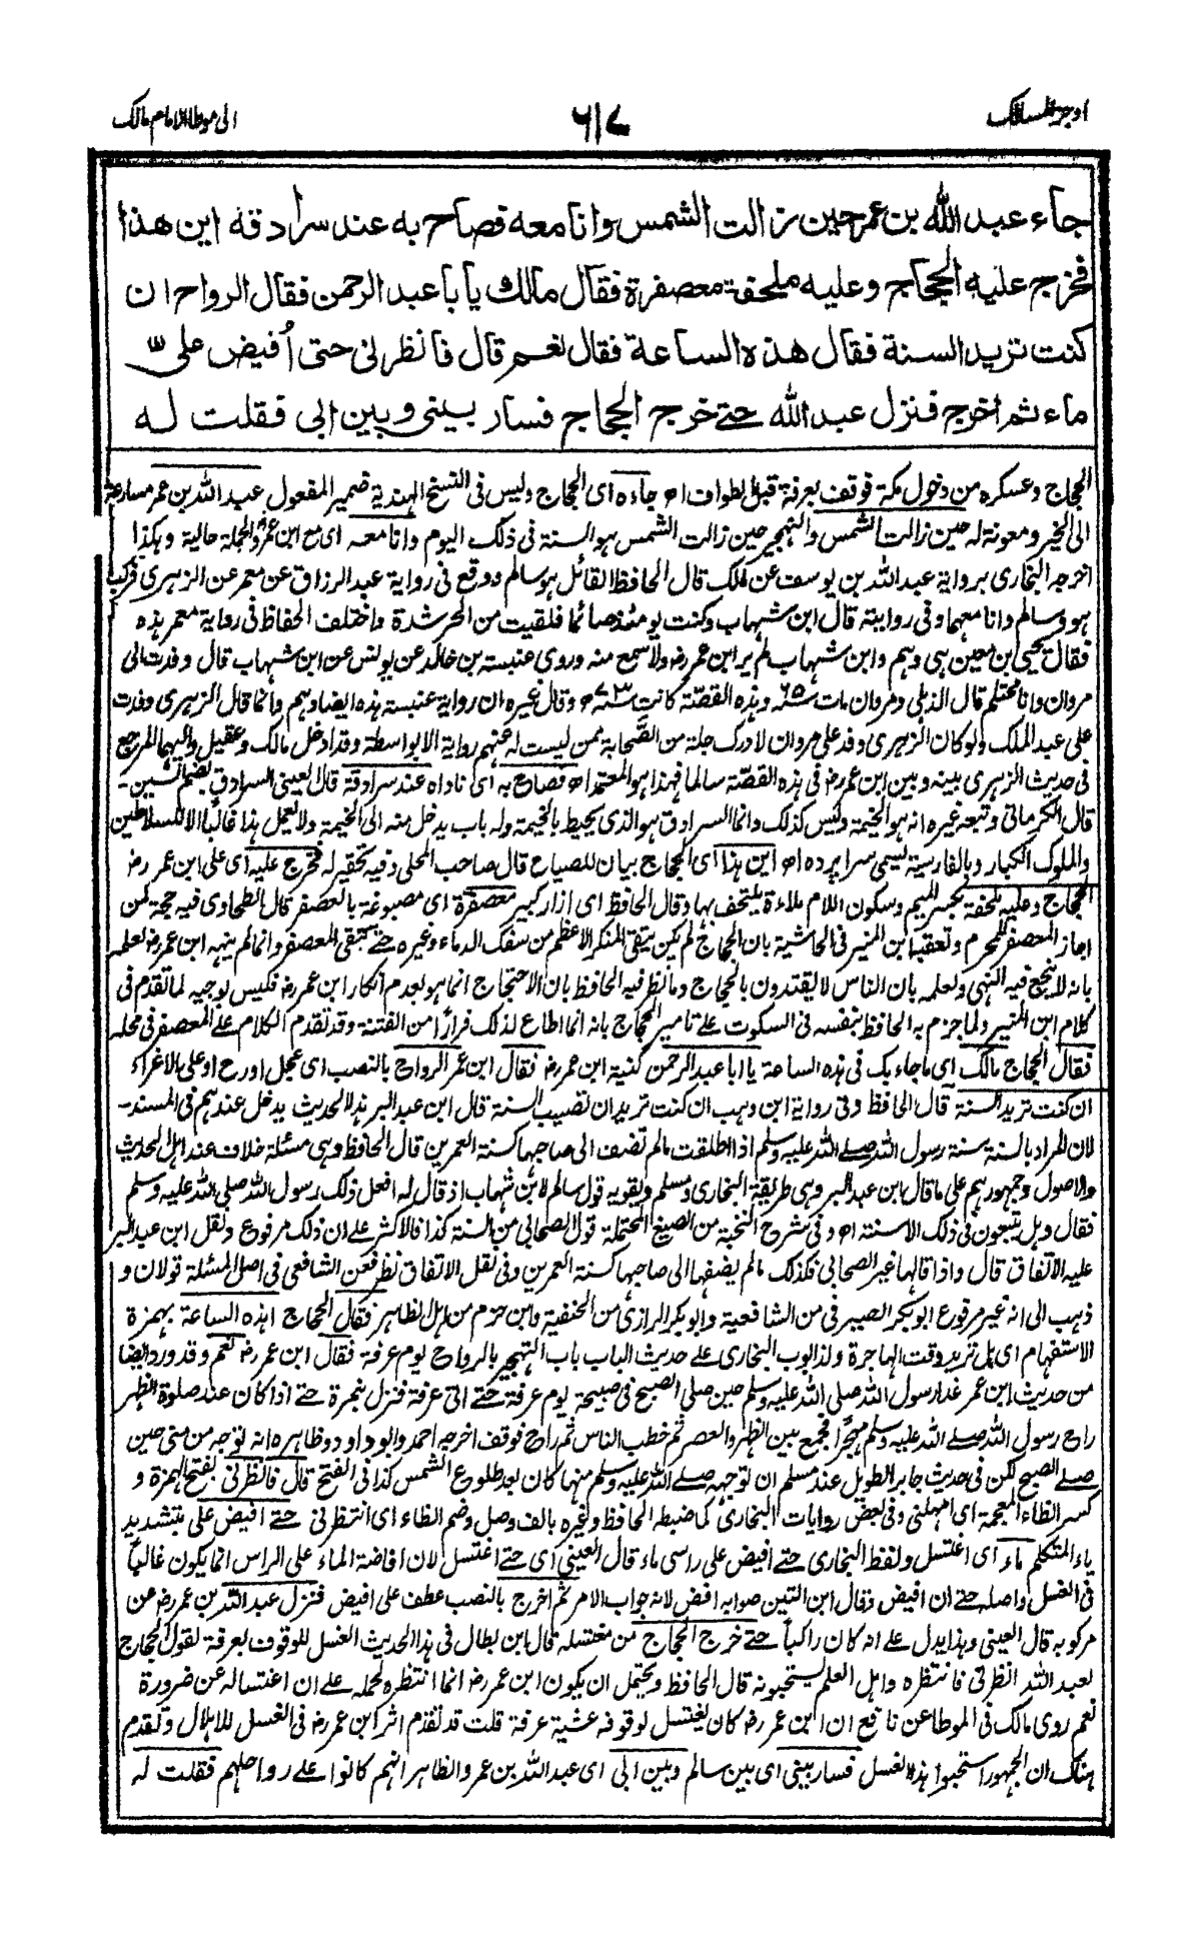 اوجز المسالك ۶۱۷ الى موطا الامام مالك
جاء عبد الله بن عمر حين زالت الشمس وانا معه فصاح به عند سرادقه اين هذا
فخرج عليه الحجاج وعليه ملحفة معصفرة فقال مالك يا ابا عبد الرحمن فقال الرواح ان
كنت تريد السنة فقال هذه الساعة فقال نعم قال فانظرنى حتى اُفيض علىّ
ماء ثم اخرج فنزل عبد الله حتے خرج الحجاج فسار بينى وبين ابى فقلت له
الحجاج وعسكره من دخول مكة فوقف بعرفة قبل الطواف اه جاءه اى الحجاج وليس فى النسخ الهندية ضمير المفعول عبد الله بن عمر مسارعة
الى الخير ومعونة له حين زالت الشمس والتهجير حين زالت الشمس هو السنة فى ذلك اليوم وانا معه اى مع ابن عمر والجملة حالية وهكذا
اخرجه البخارى برواية عبد الله بن يوسف عن مالك قال الحافظ القائل هو سالم ووقع فى رواية عبد الرزاق عن معمر عن الزهرى فركب
هو وسالم وانا معهما وفى روايته قال ابن شهاب وكنت يومئذ صائما فلقيت من الحر شدة واختلف الحفاظ فى رواية معمر هذه
فقال يحيى ابن معين هى وهم وابن شهاب لم ير ابن عمر رض ولا سمع منه وروى عنبسة بن خالد عن يونس عن ابن شهاب قال وفدت الى
مروان وانا محتلم قال الذهلى ومروان مات سنة ۶۵ وهذه القصة كانت سنة ۷۳ اه وقال غيره ان رواية عنبسة هذه ايضا وهم وانما قال الزهرى وفدت
على عبد الملك ولو كان الزهرى وفد على مروان لادرك جلة من الصحابة ممن ليست له عنهم رواية الا بواسطة وقد ادخل مالك وعقيل واليهما المرجع
فى حديث الزهرى بينه وبين ابن عمر رض فى هذه القصة سالما فهذا هو المعتمد اه فصاح به اى ناداه عند سرادقة قال العينى السرادق بضم السين -
قال الكرمانى وتبعه غيره انه هو الخيمة وليس كذلك وانما السرادق هو الذى يحيط بالخيمة وله باب يدخل منه الى الخيمة ولا يعمل هذا غالباً الا للسلاطين
والملوك الكبار وبالفارسية يسمى سرا پرده اه اين هذا اى الحجاج بيان للصياح قال صاحب المحلى وفيه تحقير له فخرج عليه اى على ابن عمر رض
الحجاج وعليه ملحفة بكسر الميم وسكون اللام ملاءة يلتحف بها وقال الحافظ اى ازار كبير معصفرة اى مصبوغة بالعصفر قال الطحاوى فيه حجة لمن
اجاز المعصفر للمحرم وتعقبه ابن المنير فى الحاشية بان الحجاج لم يكن يتقى المنكر الاعظم من سفك الدماء وغيره حتے يتقى المعصفر وانما لم ينهه ابن عمر رض لعلمه
بانه لا ينجع فيه النهى ولعلمه بان الناس لا يقتدون بالحجاج وما نظر فيه الحافظ بان الاحتجاج انما هو بعدم انكار ابن عمر رض فليس بوجيه لما تقدم فى
كلام ابن المنير ولما جزم به الحافظ بنفسه فى السكوت علے تامير الحجاج بانه انما اطاع لذلك فراراً من الفتنة وقد تقدم الكلام علے المعصفر فى محله
فقال الحجاج مالك اى ما جاء بك فى هذه الساعة يا ابا عبد الرحمن كنية ابن عمر رض فقال ابن عمر الرواح بالنصب اى عجل او رح او على الاغراء
ان كنت تريد السنة قال الحافظ وفى رواية ابن وهب ان كنت تريد ان تصيب السنة قال ابن عبد البر هذا الحديث يدخل عندهم فى المسند -
لان المراد بالسنة سنة رسول الله صلے الله عليه وسلم اذا اطلقت مالم تضف الى صاحبها كسنة العمرين قال الحافظ وهى مسئلة خلاف عند اهل الحديث
والاصول وجمهورهم على ما قال ابن عبد البر وهى طريقة البخارى ومسلم ويقويه قول سالم لابن شهاب اذ قال له افعل ذلك رسول الله صلى الله عليه وسلم
فقال وهل يتبعون فى ذلك الا سنته اه وفى شرح النخبة من الصيغ المحتملة قول الصحابى من السنة كذا فالاكثر علے ان ذلك مرفوع ونقل ابن عبد البر
عليه الاتفاق قال واذا قالها غير الصحابى فكذلك مالم يضفها الى صاحبها كسنة العمرين وفى نقل الاتفاق نظر فعن الشافعى فى اصل المسئلة قولان و
ذهب الى انه غير مرفوع ابو بكر الصيرفى من الشافعية وابو بكر الرازى من الحنفية وابن حزم من اهل الظاهر فقال الحجاج اهذه الساعة بهمزة
الاستفهام اى هل تريد وقت الهاجرة ولذا بوب البخارى علے حديث الباب باب التهجير بالرواح يوم عرفة فقال ابن عمر رض نعم وقد ورد ايضا
من حديث ابن عمر غدا رسول الله صلى الله عليه وسلم حين صلى الصبح فى صبيحة يوم عرفة حتے اتى عرفة فنزل بنمرة حتے اذا كان عند صلوة الظهر
راح رسول الله صلے الله عليه وسلم مهجراً فجمع بين الظهر والعصر ثم خطب الناس ثم راح فوقف اخرجه احمد وابو داود وظاهره انه توجه من منى حين
صلے الصبح لكن فى حديث جابر الطويل عند مسلم ان توجهه صلے الله عليه وسلم منها كان بعد طلوع الشمس كذا فى الفتح قال فانظرنى بفتح الهمزة و
كسر الظاء المعجمة اى امهلنى وفى بعض روايات البخارى كما ضبطه الحافظ وغيره بالف وصل وضم الظاء اى انتظرنى حتے افيض على بتشديد
ياء المتكلم ماء اى اغتسل ولفظ البخارى حتے افيض على راسى ماء قال العينى اى حتے اغتسل لان افاضة الماء على الراس انما يكون غالباً
فى الغسل واصله حتے ان افيض وقال ابن التين صوابه افض لانه جواب الامر ثم اخرج بالنصب عطف على افيض فنزل عبد الله بن عمر رض عن
مركوبه قال العينى وهذا يدل علے انه كان راكباً حتے خرج الحجاج من مغتسله قال ابن بطال فى هذا الحديث الغسل للوقوف بعرفة لقول الحجاج
لعبد الله انظرنى فانتظره واهل العلم يستحبونه قال الحافظ ويحتمل ان يكون ابن عمر رض انما انتظره لحمله علے ان اغتساله عن ضرورة
نعم روى مالك فى الموطا عن نافع ان ابن عمر رض كان يغتسل لوقوفه عشية عرفة قلت قد تقدم اثر ابن عمر رض فى الغسل للاهلال وتقدم
هناك ان الجمهور استحبوا هذا الغسل فسار بينى اى بين سالم وبين ابى اى عبد الله بن عمر والظاهر انهم كانوا علے رواحلهم فقلت له